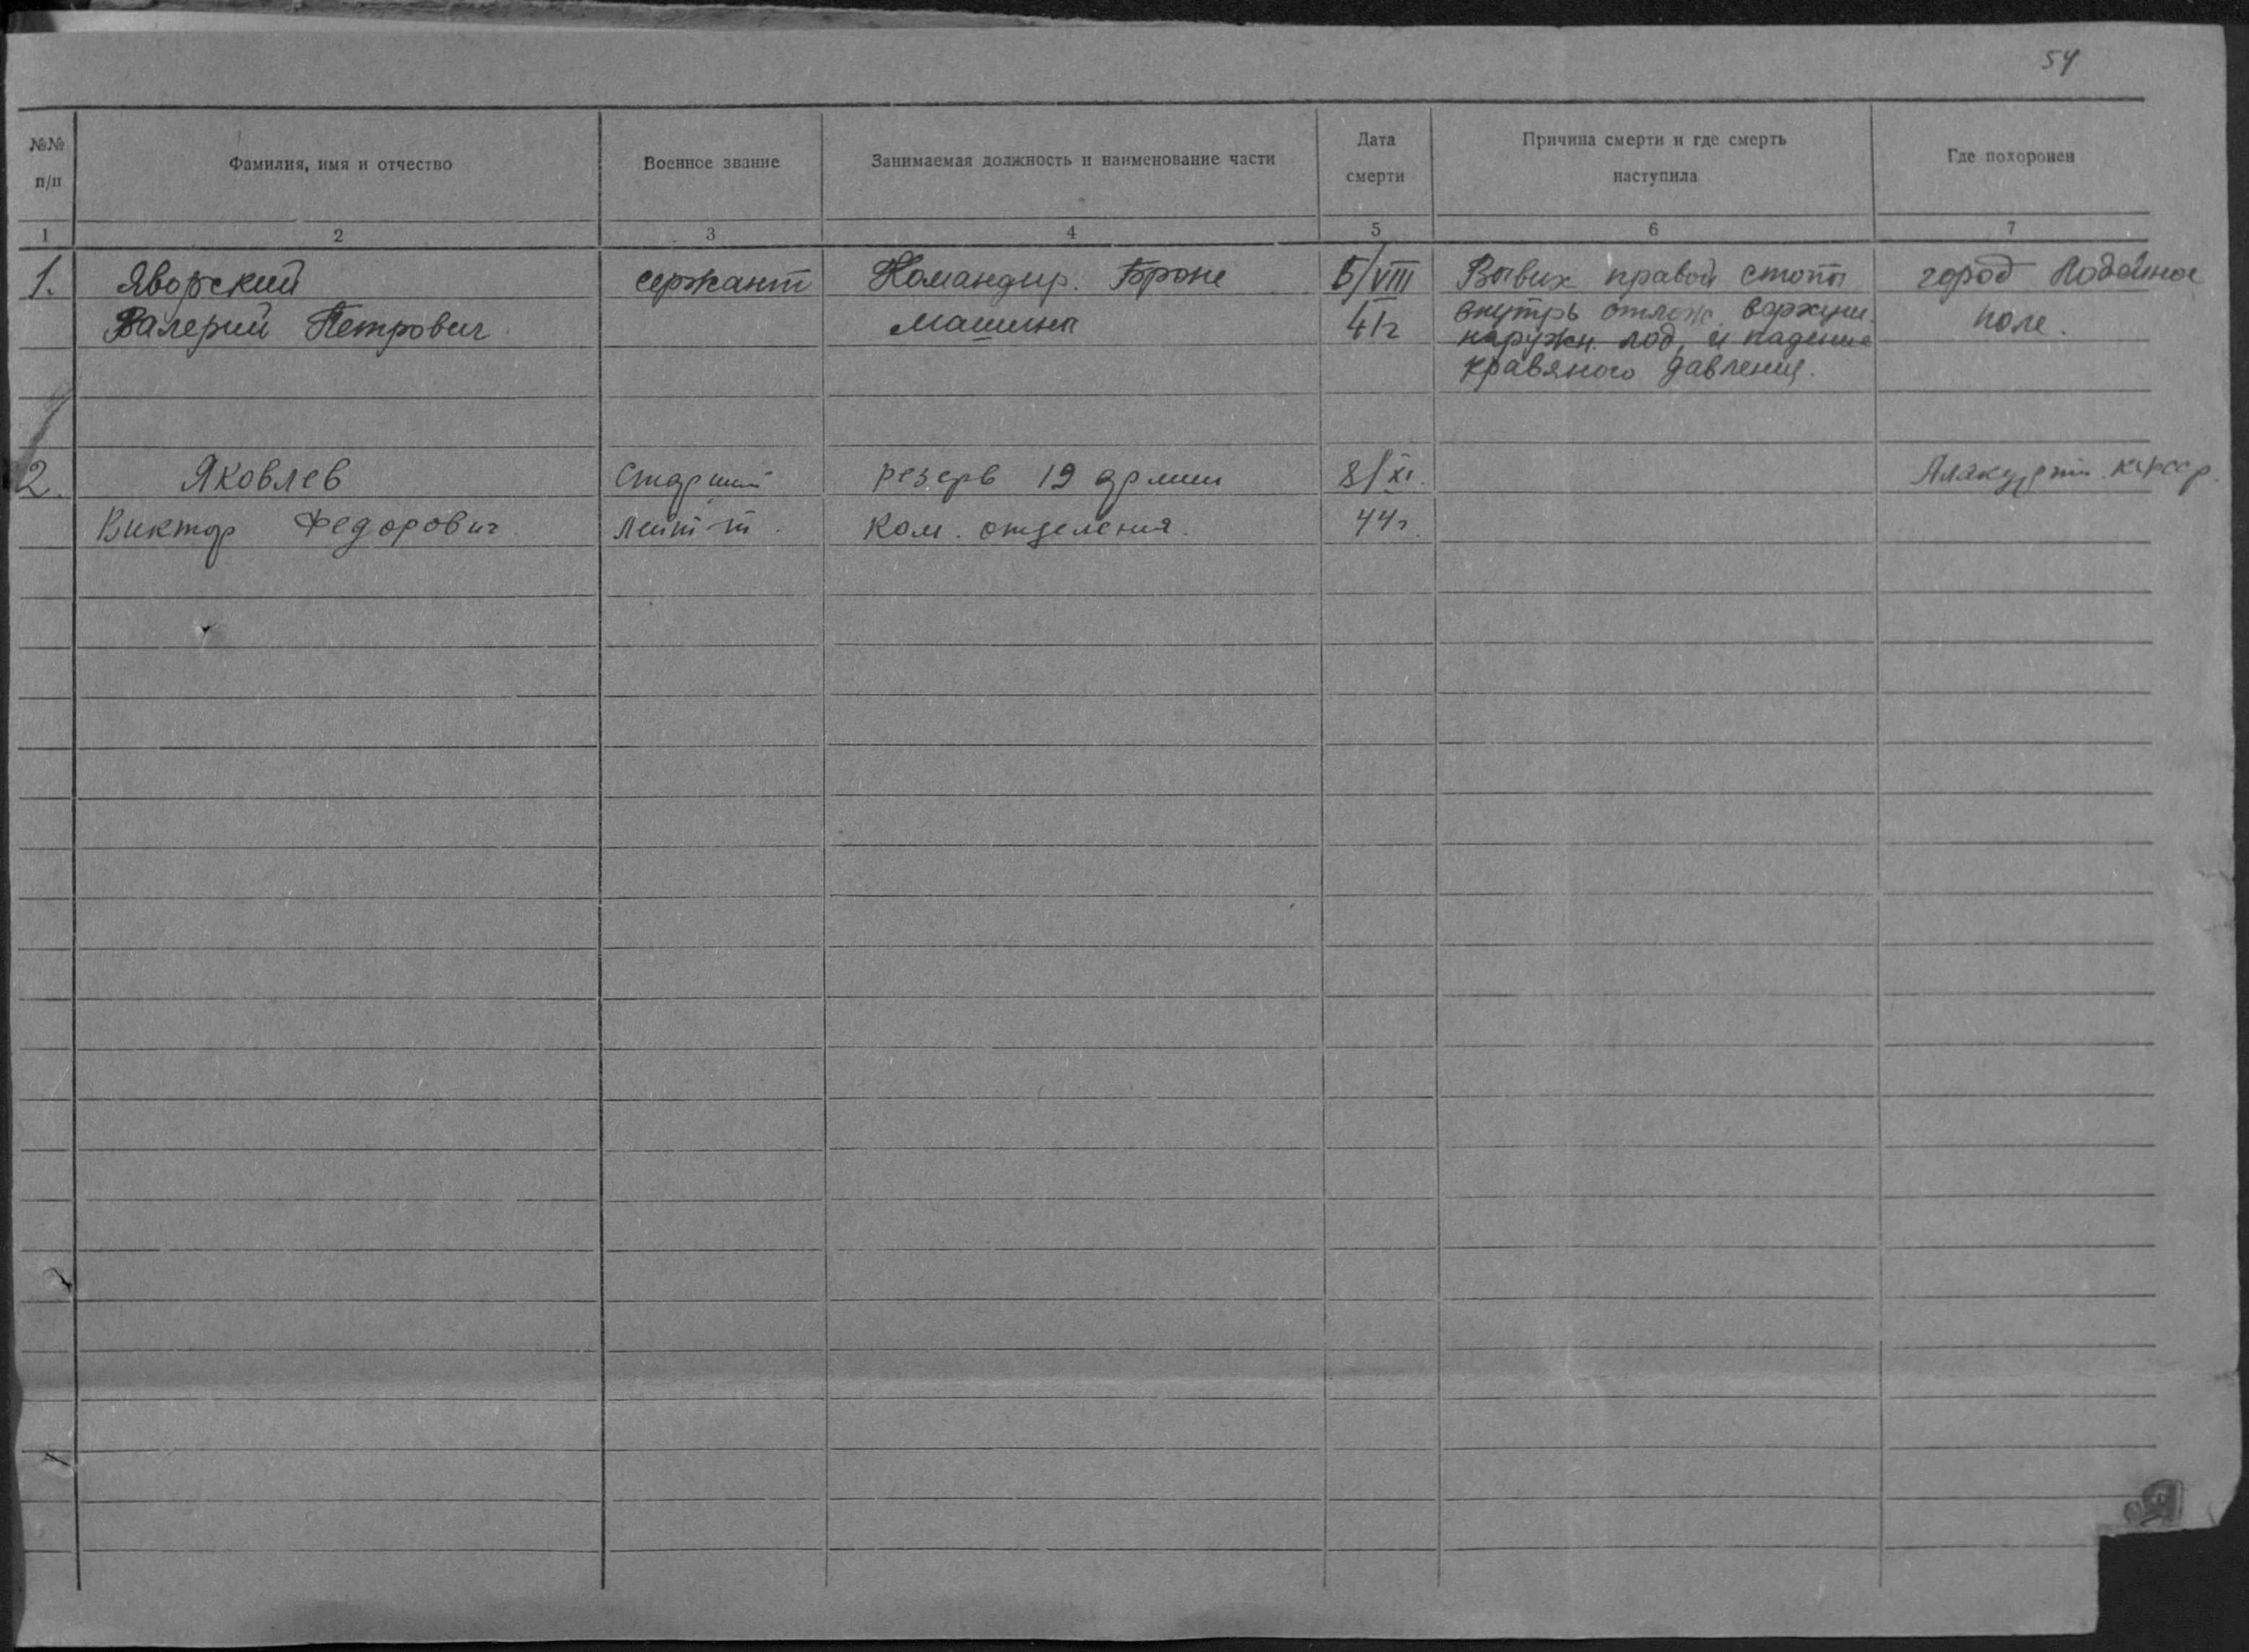 54
№№ п/п
Фамилия, имя и отчество
Военное звание
Занимаемая должность и наименование части
Дата смерти
Причина смерти и где смерть наступила
Где похоронен
1 2 3 4 5 6 7
1. Яворский сержант Командир. Броне 5/VIII Вывих правой стопы город Лодейное
Валерий Петрович машины 41г внутрь отлож. поле.
наружн. лод. и падение
кравяного давления.
2. Яковлев Старший резерв 19 армии 8/XI. Алакуртти
Виктор Федорович лейт-т. Ком. отделения. 44г.